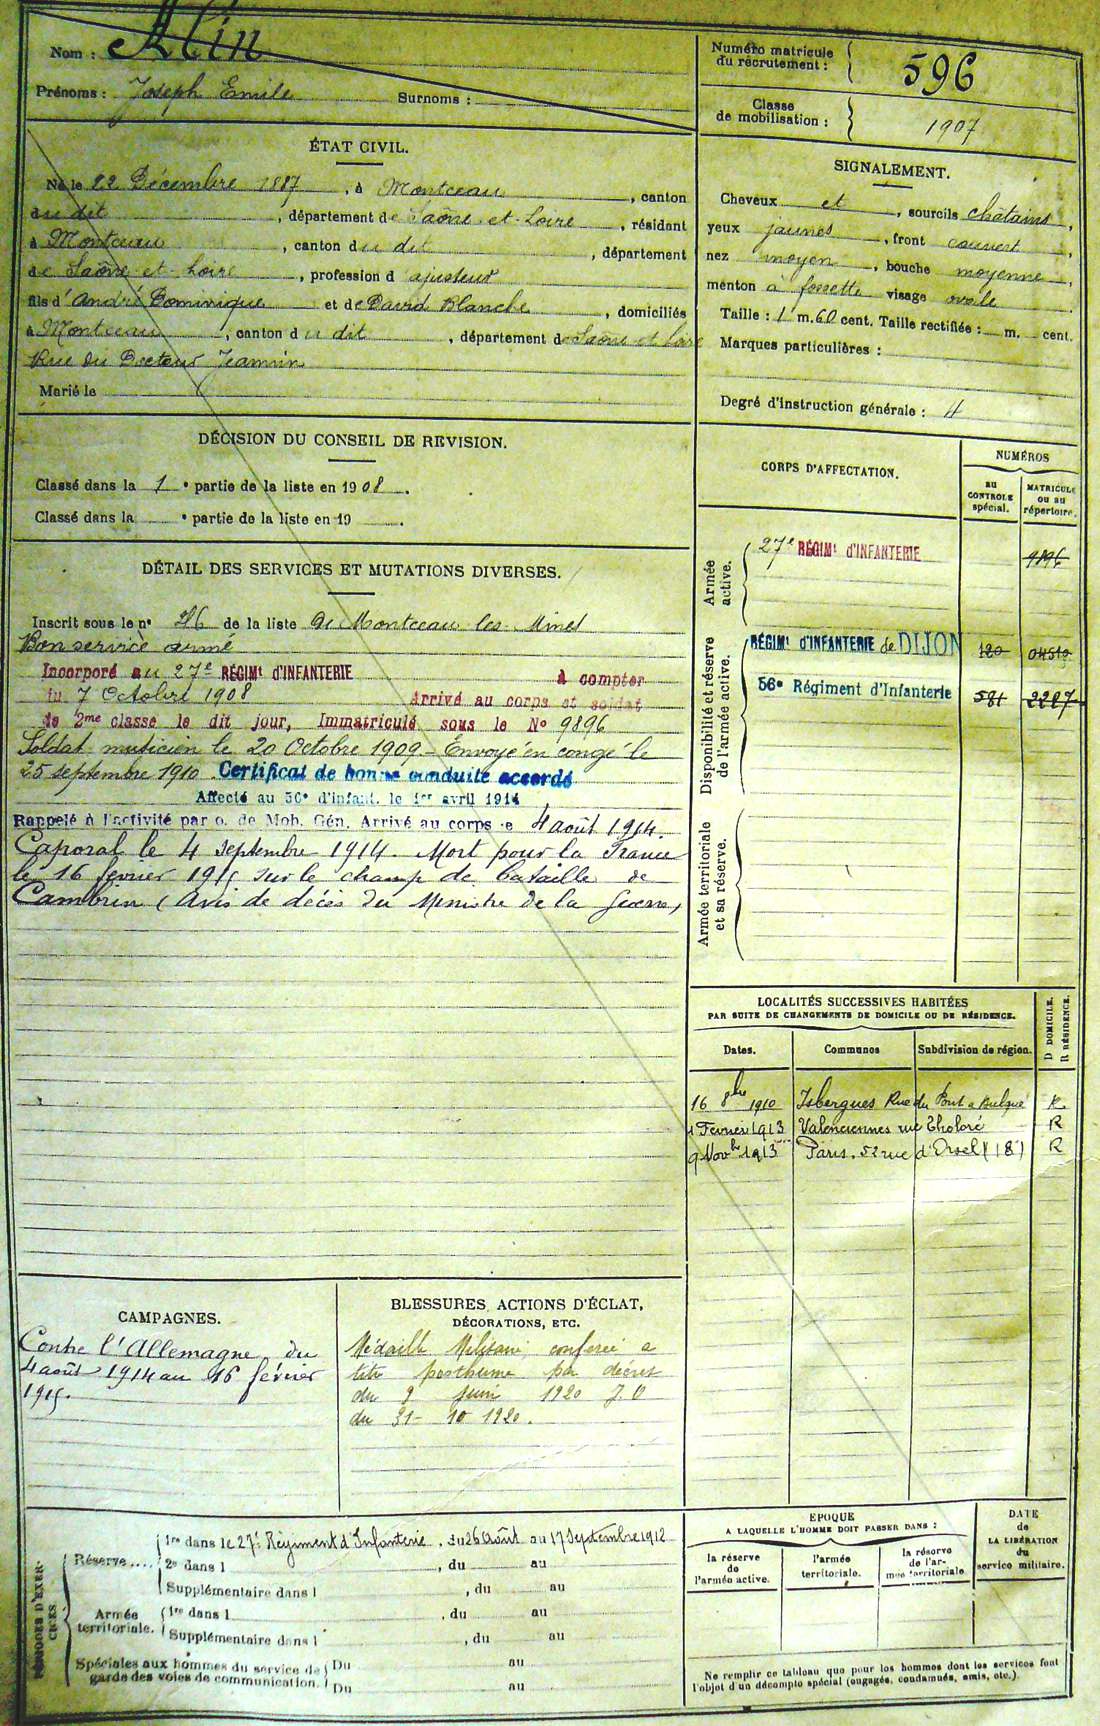 Nom : Alin
Prénoms : Joseph Emile Surnoms :
ÉTAT CIVIL.
Né le 22 Décembre 1887, à Montceau, canton
du dit, département de Saône et Loire, résidant
à Montceau, canton du dit, département
de Saône et Loire, profession d'ajusteur
fils d'André Dominique et de David Blanche, domiciliés
à Montceau, canton du dit, département de Saône et Loire
Rue du Docteur Jeannin
Marié le
DÉCISION DU CONSEIL DE REVISION.
Classé dans la 1e partie de la liste en 1908.
Classé dans la e partie de la liste en 19 .
DÉTAIL DES SERVICES ET MUTATIONS DIVERSES.
Inscrit sous le n° 26 de la liste de Montceau les Mines
Bon service armé
Incorporé au 27e RÉGIMt d'INFANTERIE à compter
du 7 Octobre 1908 Arrivé au corps et soldat
de 2me classe le dit jour, Immatriculé sous le N° 9896
Soldat musicien le 20 Octobre 1909 - Envoyé en congé le
25 septembre 1910 Certificat de bonne conduite accordé
Affecté au 56e d'infant. le 1er avril 1914
Rappelé à l'activité par o. de Mob. Gén. Arrivé au corps le 4 août 1914.
Caporal le 4 septembre 1914. Mort pour la France
le 16 février 1915 sur le champ de bataille de
Cambrin (Avis de décès du Ministre de la Guerre)
Numéro matricule
du recrutement : 596
Classe
de mobilisation : 1907
SIGNALEMENT.
Cheveux et, sourcils châtains,
yeux jaunes, front couvert,
nez moyen, bouche moyenne,
menton à fossette visage ovale
Taille : 1 m. 60 cent. Taille rectifiée : m. cent.
Marques particulières :
Degré d'instruction générale : 4
CORPS D'AFFECTATION.
NUMÉROS
au CONTROLE spécial.
MATRICULE ou au répertoire.
Armée active.
27e RÉGIMt d'INFANTERIE 9896
Disponibilité et réserve de l'armée active.
RÉGIMt d'INFANTERIE de DIJON 120 04510
56e Régiment d'Infanterie 581 2227
Armée territoriale et sa réserve.
LOCALITÉS SUCCESSIVES HABITÉES
PAR SUITE DE CHANGEMENTS DE DOMICILE OU DE RÉSIDENCE.
D DOMICILE.
R RÉSIDENCE.
Dates. Communes Subdivision de région.
16 8bre 1910 Isbergues Rue du Pont à R
1 Fevrier 1913 Valenciennes rue Tholozé R
9 Novbre 1913 Paris. 52 rue d'Orsel (18) R
CAMPAGNES.
Contre l'Allemagne, du
4 août 1914 au 16 février
1915.
BLESSURES, ACTIONS D'ÉCLAT,
DÉCORATIONS, ETC.
Médaille Militaire, conférée à
titre posthume par décret
du 9 Juin 1920 J.O
du 31-10 1920.
PÉRIODES D'EXERCICES
Réserve....
1re dans le 27e Régiment d'Infanterie, du 26 Août au 17 Septembre 1912
2e dans l , du au
Supplémentaire dans l , du au
Armée territoriale.
1re dans l , du au
Supplémentaire dans l , du au
Spéciales aux hommes du service de
garde des voies de communication.
Du au
Du au
EPOQUE
A LAQUELLE L'HOMME DOIT PASSER DANS :
la réserve de l'armée active.
l'armée territoriale.
la réserve de l'armée territoriale
DATE de LA LIBÉRATION du service militaire.
Ne remplir ce tableau que pour les hommes dont les services font
l'objet d'un décompte spécial (engagés, condamnés, omis, etc.).